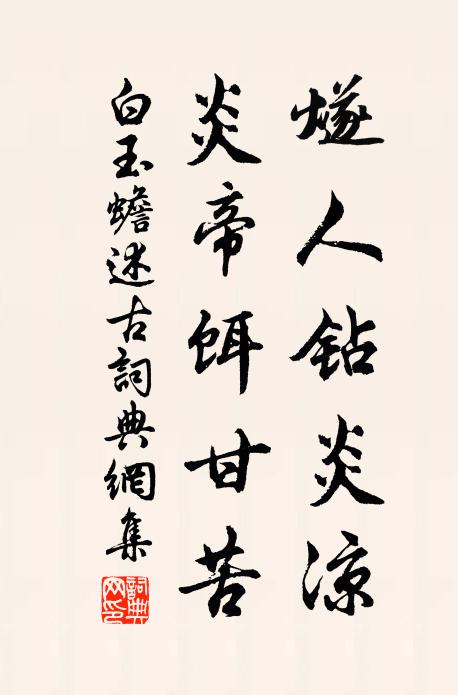 燧人鉆炎涼
炎帝餌甘苦
白玉蟾述古詞典網集
詞典网印